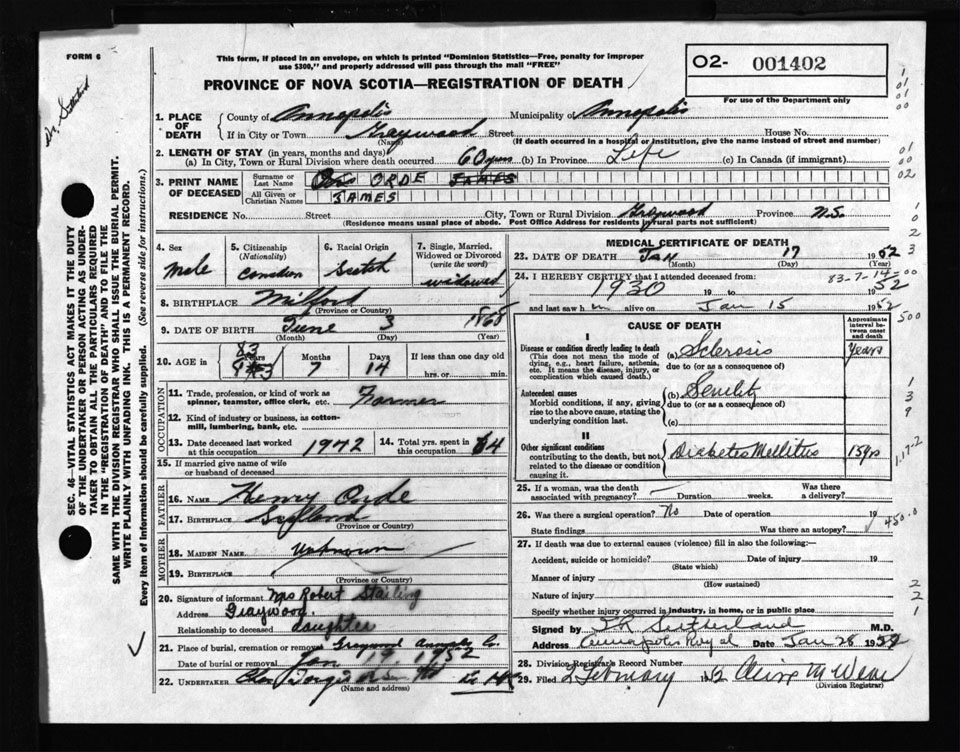 FORM 6
This form, if placed in an envelope, on which is printed "Dominion Statistics—Free, penalty for improper
use $300," and properly addressed will pass through the mail "FREE"
PROVINCE OF NOVA SCOTIA—REGISTRATION OF DEATH
O2- 001402
For use of the Department only
Dr. Sutherland
SEC. 46—VITAL STATISTICS ACT MAKES IT THE DUTY
OF THE UNDERTAKER OR PERSON ACTING AS UNDER-
TAKER TO OBTAIN ALL THE PARTICULARS REQUIRED
IN THE "REGISTRATION OF DEATH" AND TO FILE THE
SAME WITH THE DIVISION REGISTRAR WHO SHALL ISSUE THE BURIAL PERMIT.
WRITE PLAINLY WITH UNFADING INK. THIS IS A PERMANENT RECORD.
Every item of Information should be carefully supplied. (See reverse side for instructions.)
1. PLACE OF DEATH
County of Annapolis Municipality of Annapolis
If in City or Town Graywood Street House No.
(Name) (If death occurred in a hospital or institution, give the name instead of street and number)
2. LENGTH OF STAY (in years, months and days)
(a) In City, Town or Rural Division where death occurred 60 years (b) In Province Life (c) In Canada (if immigrant)
3. PRINT NAME OF DECEASED
Surname or Last Name ORDE JAMES
All Given or Christian Names JAMES
RESIDENCE No. Street City, Town or Rural Division Graywood Province N.S.
(Residence means usual place of abode. Post Office Address for Rural parts not sufficient)
4. Sex Male
5. Citizenship (Nationality) Canadian
6. Racial Origin Scotch
7. Single, Married, Widowed or Divorced (write the word) widowed
8. BIRTHPLACE Milford
(Province or Country)
9. DATE OF BIRTH June 3 1868
(Month) (Day) (Year)
10. AGE in 83 Years Months 7 Days 14 If less than one day old
hrs. or min.
OCCUPATION
11. Trade, profession, or kind of work as spinner, teamster, office clerk, etc. Farmer
12. Kind of industry or business, as cotton-mill, lumbering, bank, etc.
13. Date deceased last worked at this occupation 1942
14. Total yrs. spent in this occupation 64
15. If married give name of wife or husband of deceased
FATHER
16. NAME Henry Orde
17. BIRTHPLACE Scotland
(Province or Country)
MOTHER
18. MAIDEN NAME Unknown
19. BIRTHPLACE
(Province or Country)
20. Signature of informant Mrs Robert Starling
Address Graywood.
Relationship to deceased daughter
21. Place of burial, cremation or removal Graywood Annapolis Co.
Date of burial or removal Jan 19, 1952
22. UNDERTAKER
(Name and address)
MEDICAL CERTIFICATE OF DEATH
23. DATE OF DEATH JAN 17 1952
(Month) (Day)
83-7-14
24. I HEREBY CERTIFY that I attended deceased from:
1930 19 to 1952
and last saw h m alive on Jan 15 1952
CAUSE OF DEATH
Approximate interval between onset and death
I
Disease or condition directly leading to death
(This does not mean the mode of dying, e.g., heart failure, asthenia, etc. It means the disease, injury, or complication which caused death.)
(a) Sclerosis Years
due to (or as a consequence of)
Antecedent causes
Morbid conditions, if any, giving rise to the above cause, stating the underlying condition last.
(b) Senility
due to (or as a consequence of)
(c)
II
Other significant conditions
contributing to the death, but not related to the disease or condition causing it.
Diabetes Mellitus 15 yrs
25. If a woman, was the death associated with pregnancy? Duration weeks. Was there a delivery?
26. Was there surgical operation? No Date of operation 19
State findings Was there an autopsy?
27. If death was due to external causes (violence) fill in also the following:—
Accident, suicide or homicide? Date of injury 19
(State which)
Manner of injury
(How sustained)
Nature of injury
Specify whether injury occurred in industry, in home, or in public place
Signed by Sutherland M.D.
Address Annapolis Royal Date Jan 28 1952
28. Division Registrar's Record Number
29. Filed February 1952
(Division Registrar)